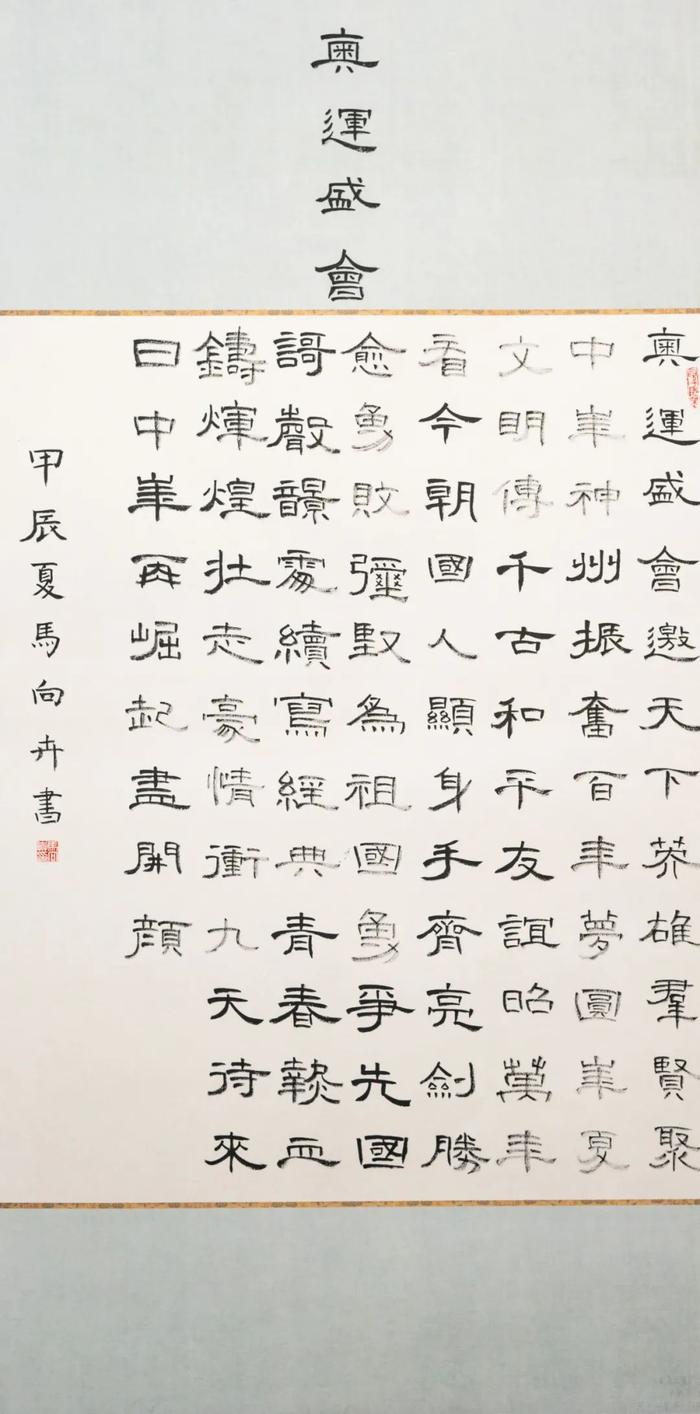 奧運盛會
奧運盛會邀天下英雄羣賢聚
中華神州振奮百年夢圓華夏
文明傳千古和平友誼昭萬年
看今朝國人顯身手齊亮劍勝
愈勇敗彌堅為祖國勇爭先國
謌聲響處續寫經典青春熱血
鑄煇煌壯志豪情衝九天待來
日中華再崛起盡開顏
甲辰夏馬向卉書